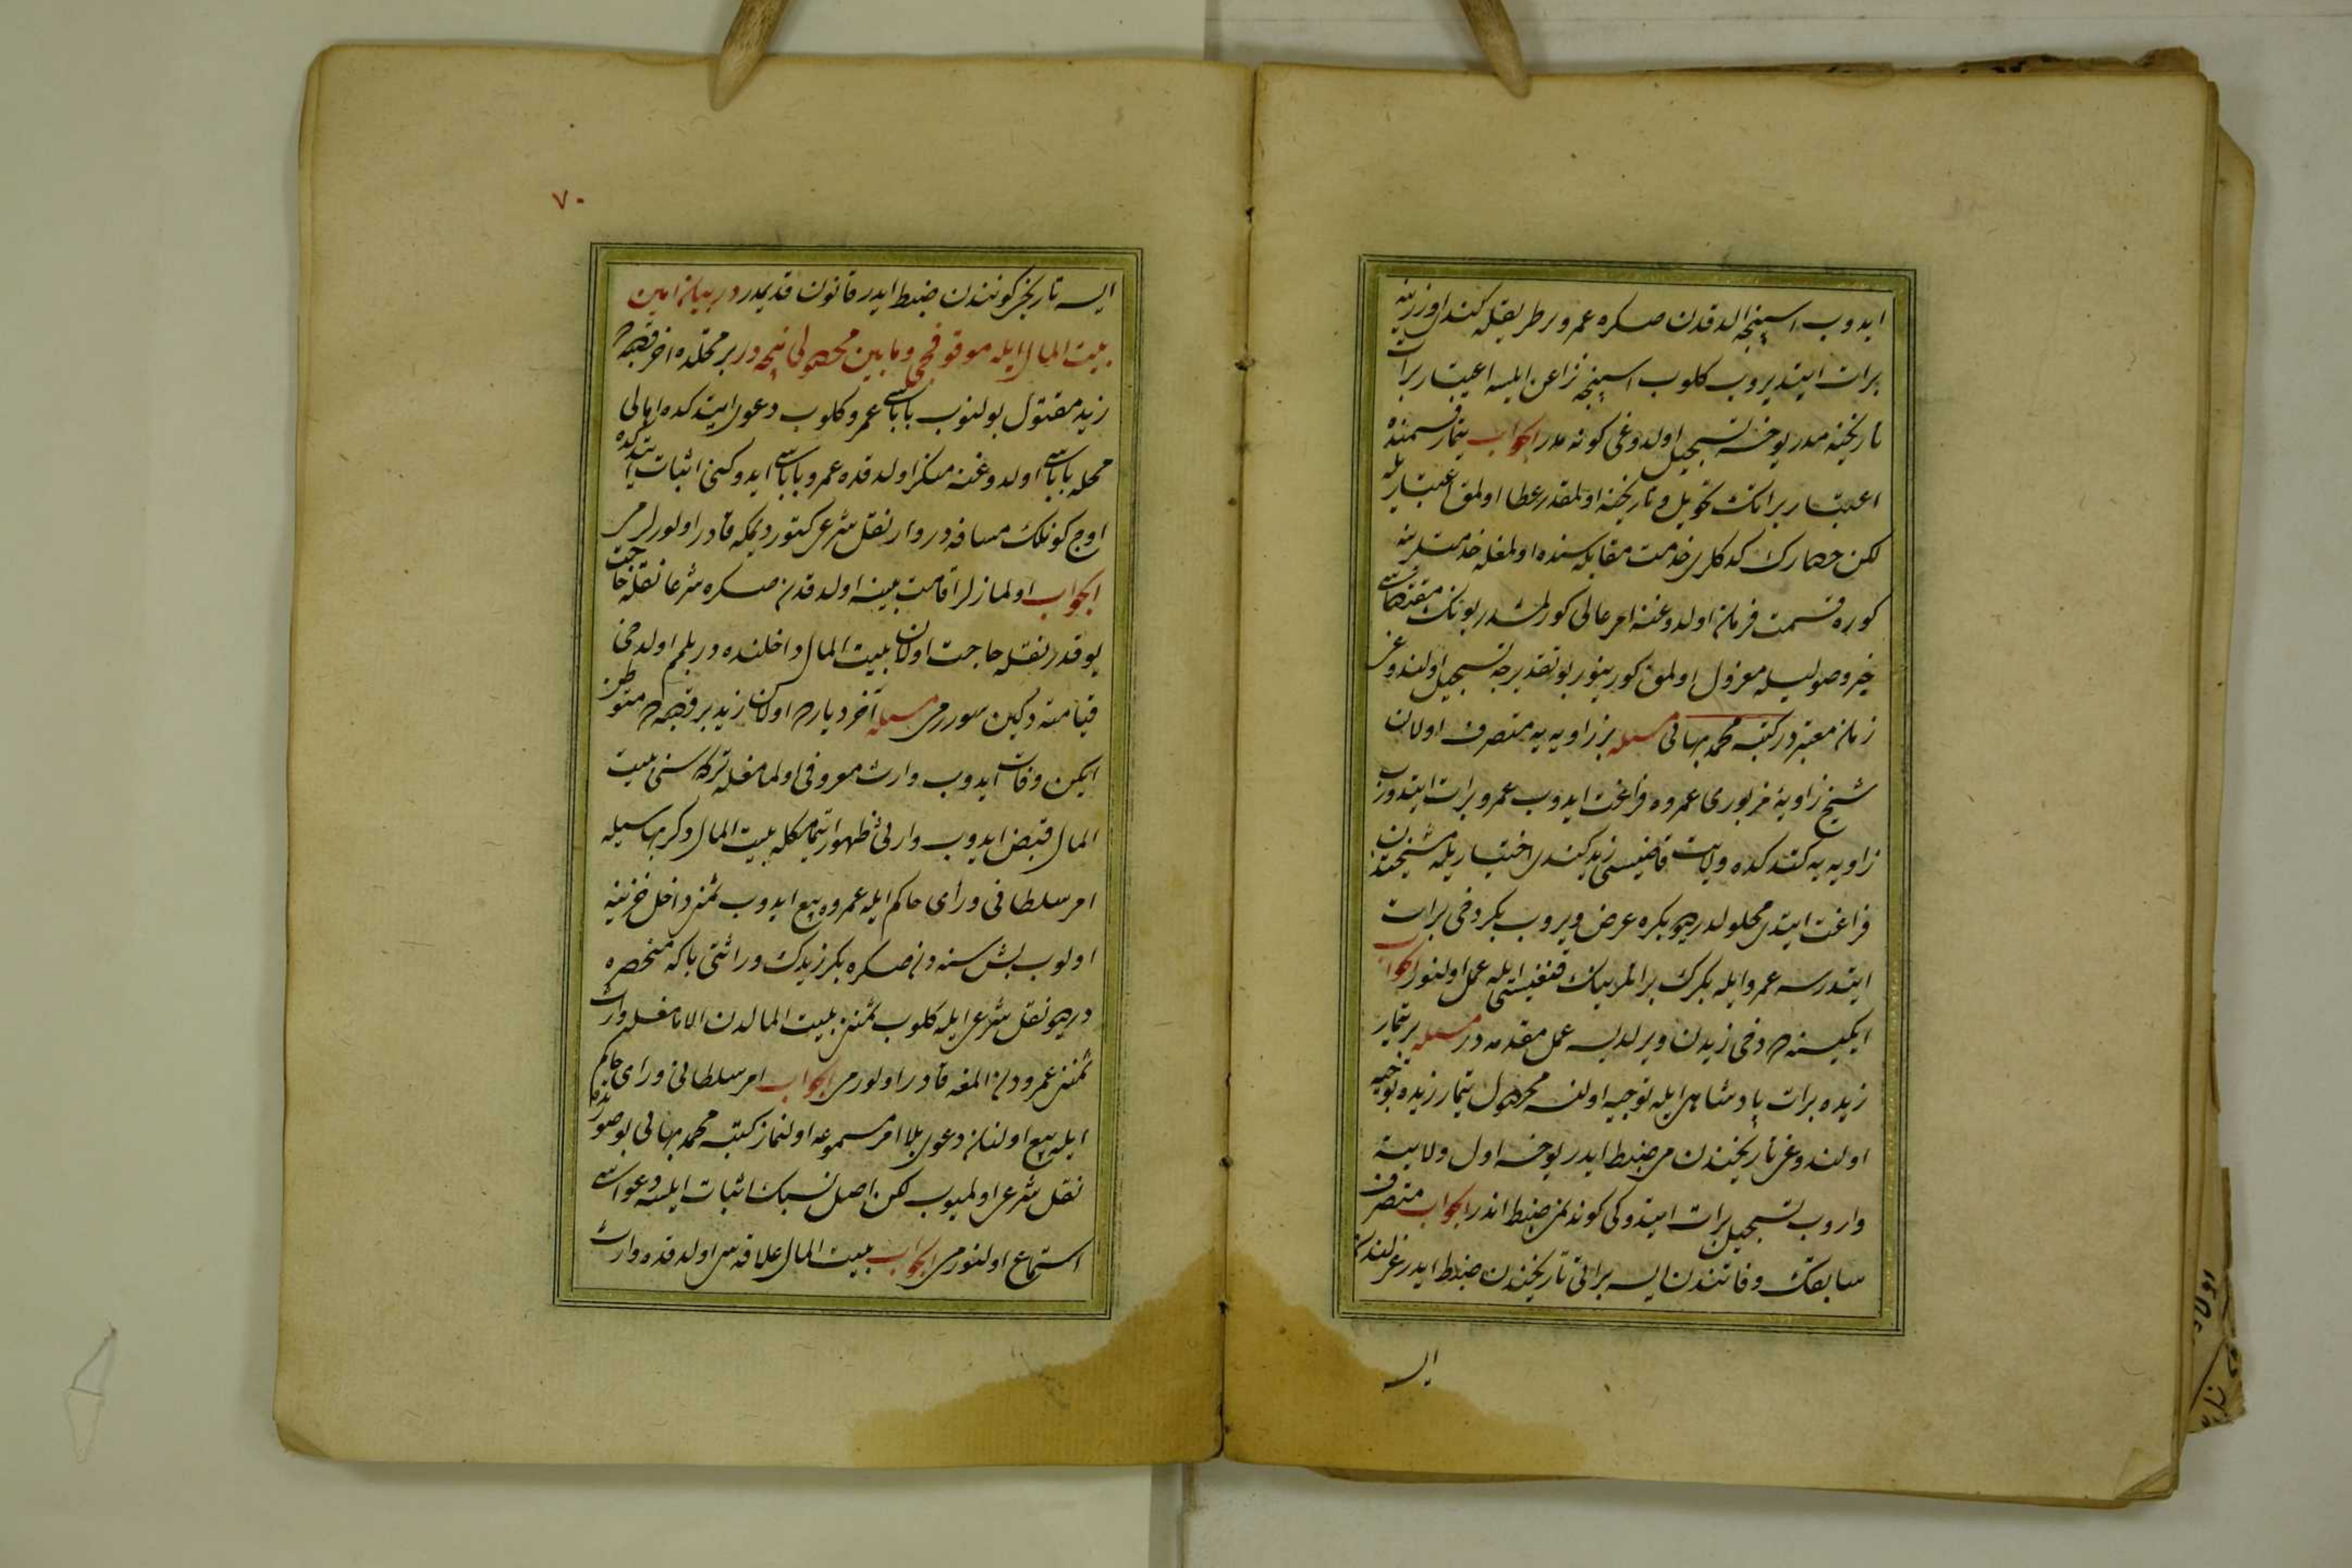 ایدوب اسپنجه الدقدن صکره عمرو بر طریقله کندی اوزرینه
برات ایتدیروب کلوب اسپنجه نزاعن ایلسه اعتبار برات
تاریخنه میدر یوخسه تسجیل اولدوغی کونه میدر الجواب تیمار قسمنده
اعتبار براتک تحویل و تاریخنه اولمقدر عطا اولمق اعتباریله
لکن حصارك کدکلری خدمت مقابله سنده اولمغله خدمتلرینه
کوره قسمت فرمان اولدوغنه امر عالی کورلمشدر بونک مقتضاسی
خبر وصولیله معزول اولمق کورینور بو تقدیرجه تسجیل اولندوغی
زمان معتبردر کتبه محمد بهائی مسئله بر زاویه یه متصرف اولان
شیخ زاویۀ مزبوری عمروه فراغت ایدوب عمرو برات ایتدروب
زاویه یه کتدکده ولایت قاضیسی زید کندی اختیاریله مشیختدن
فراغت ایتدی محلولدر دیو بکره عرض ویروب بکر دخی برات
ایتدرسه عمرو ایله بکرك براتلرینک قنغیسی ایله عمل اولنور الجواب
ایکیسنه دخی زیدن ویرلدیسه عمل مقدمه در مسئله بر تیمار
زیده برات پادشاهی ایله توجیه اولنسه محصول تیمار زیده توجیه
اولندوغی تاریخندن می ضبط ایدر یوخسه اول ولایته
واروب تسجیل برات ایتدوکی کوندنمی ضبط ایدر الجواب متصرف
سابقک وفاتندن ایسه براتی تاریخندن ضبط ایدر عزلندن
ایسه
٧٠
ایسه تاریخی کونندن ضبط ایدر قانون قدیمدر در بیان امین
بیت المال ایله موقوفجی و مابین محصولی نیجه در بر محلده اخر قصبه دن
زید مقتول بولنوب باباسی عمرو کلوب دعوی ایتدکده اهالی
محله باباسی اولدوغنه منکر اولدقده عمرو باباسی ایدوکنی اثبات ایتدکده
اوچ کونلك مسافه در وار نقل شرعی کتور دیمکه قادر اولورلرمی
الجواب اولمازلر اقامت بینه اولدقدن صکره شرعا نقله حاجت
یوقدر نقله حاجت اولان بیت المال داخلنده در بلمم اولدخی
قیامته دکین سوررمی مسئله آخر دیاردن اولان زید بر قصبه ده متوطن
ایکن وفات ایدوب وارث معروفی اولمامغله ترکه سنی بیت
المال قبض ایدوب وارثی ظهور ایتمامکله بیت المال دکر بهاسیله
امر سلطانی و رأی حاکم ایله عمروه بیع ایدوب ثمنی داخل خزینه
اولوب بش سنه دن صکره بکر زیدك وراثتی باکه منحصره
در دیو نقل شرعی ایله کلوب ثمننی بیت المالدن الامامغله وارث
ثمننی عمرودن المغه قادر اولورمی الجواب امر سلطانی و رأی حاکم
ایله بیع اولنان دعوی بلا امر مسموعه اولنماز کتبه محمد بهائی بو صورتده
نقل شرعی اولمیوب لکن اصل نسبک اثبات ایلسه دعواسی
استماع اولنورمی الجواب بیت المال علاقه سی اولدقده وارث